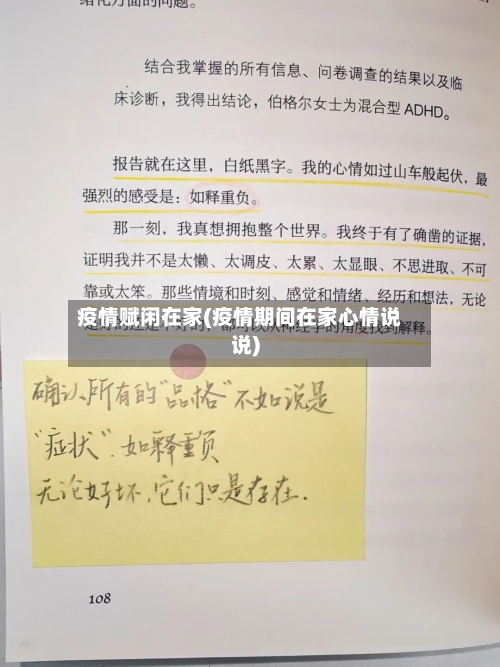 绪化方面的问题。
结合我掌握的所有信息、问卷调查的结果以及临
床诊断，我得出结论，伯格尔女士为混合型 ADHD。
报告就在这里，白纸黑字。我的心情如过山车般起伏，最
强烈的感受是：如释重负。
那一刻，我真想拥抱整个世界。我终于有了确凿的证据，
证明我并不是太懒、太调皮、太累、太显眼、不思进取、不可
靠或太笨。那些情境和时刻、感觉和情绪、经历和想法，无论
是好的还是不好的，都可以从神经学的角度找到解释。
疫情赋闲在家(疫情期间在家心情说
说)
确认所有的“品格”不如说是
“症状”.如释重负
无论好坏,它们只是存在.
108